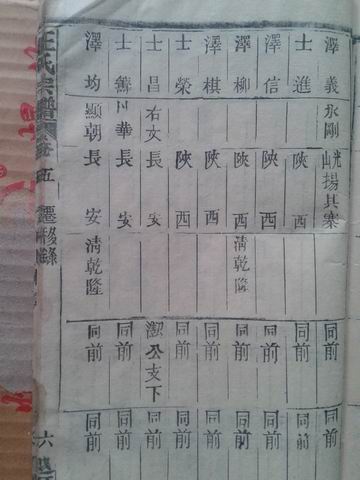 澤義永剛尖山揚其寨同前同前
士進陝西同前同前
澤信陝西同前同前
澤柳陝西清乾隆同前同前
澤棋陝西同前同前
士榮陝西同前同前
士昌右文長安潔公支下同前
士鑄川華長安同前同前
澤均顯朝長安清乾隆同前同前
汪氏宗譜 五 遷移錄 六